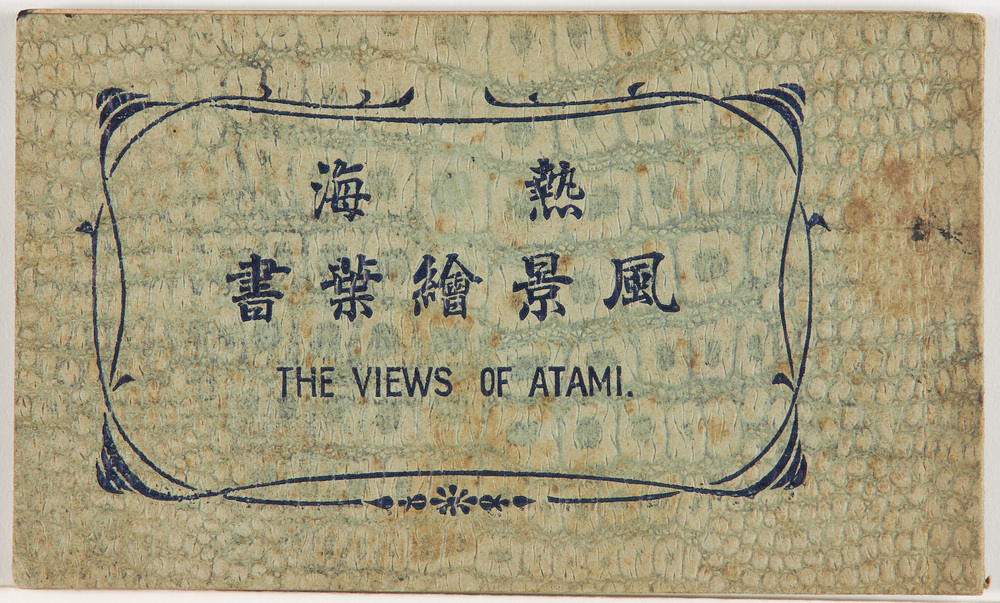 熱海
風景繪葉書
THE VIEWS OF ATAMI.